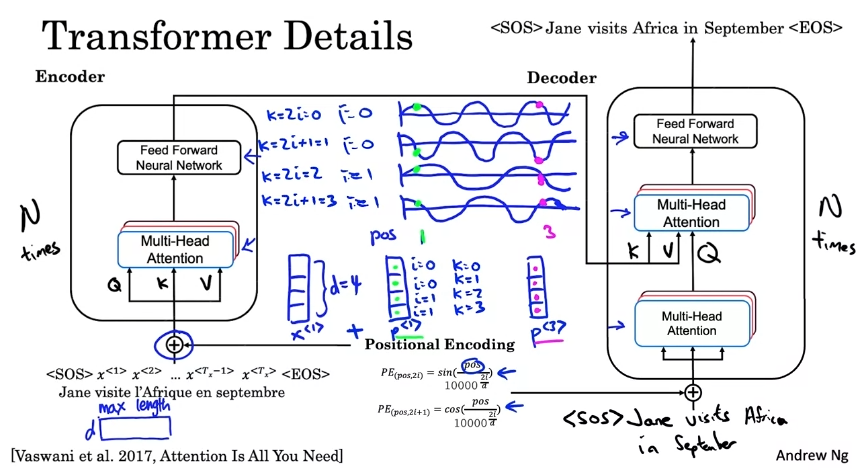 Transformer Details
<SOS> Jane visits Africa in September <EOS>
Encoder
Decoder
k=2i=0 i=0
k=2i+1=1 i=0
k=2i=2 i=1
k=2i+1=3 i=1
Feed Forward
Neural Network
Feed Forward
Neural Network
N
times
N
times
Multi-Head
Attention
Q K V
Multi-Head
Attention
K V Q
pos 1 3
d=4
i=0 k=0
i=0 k=1
i=1 k=2
i=1 k=3
x<1> + p<1> p<3>
Multi-Head
Attention
+
Positional Encoding
<SOS> x<1> x<2> … x<Tx−1> x<Tx> <EOS>
Jane visite l'Afrique en septembre
PE(pos,2i) = sin(pos/10000^(2i/d))
PE(pos,2i+1) = cos(pos/10000^(2i/d))
+
max length
d
<SOS> Jane visits Africa
in September
[Vaswani et al. 2017, Attention Is All You Need]
Andrew Ng